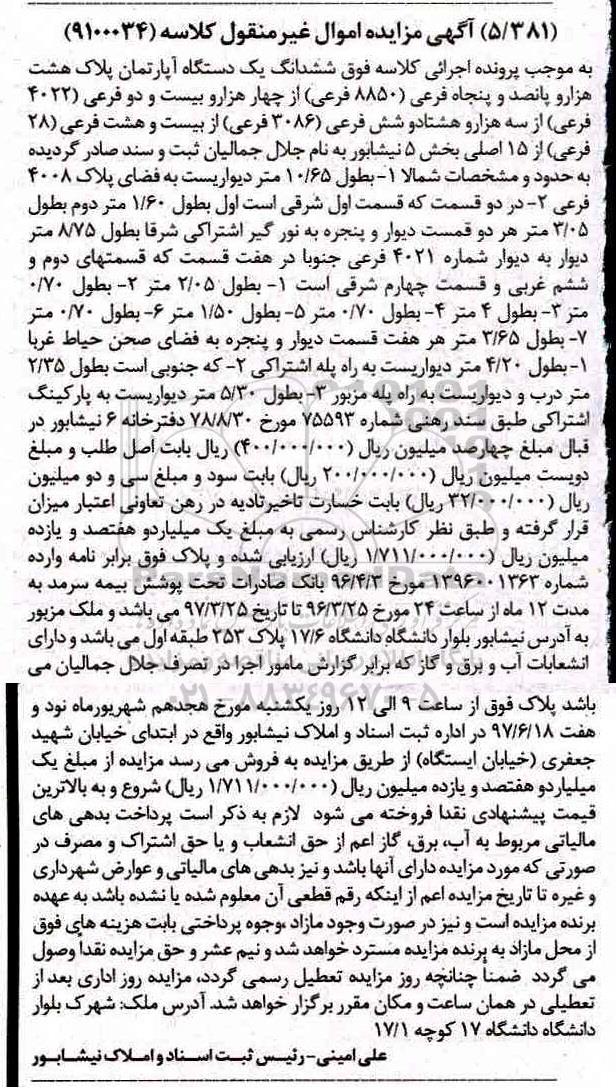 (۵/۳۸۱) آگهی مزایده اموال غیر منقول کلاسه (۹۱۰۰۰۳۴)
به موجب پرونده اجرائی کلاسه فوق ششدانگ یک دستگاه آپارتمان پلاک هشت
هزار و پانصد و پنجاه فرعی (۸۸۵۰ فرعی) از چهار هزارو بیست و دو فرعی (۴۰۲۲
فرعی) از سه هزارو هشتادو شش فرعی (۳۰۸۶ فرعی) از بیست و هشت فرعی (۲۸
فرعی) از ۱۵ اصلی بخش ۵ نیشابور به نام جلال جمالیان ثبت و سند صادر گردیده
به حدود و مشخصات شمالا ۱- بطول ۱۰/۶۵ متر دیواریست به فضای پلاک ۴۰۰۸
فرعی ۲- در دو قسمت که قسمت اول شرقی است اول بطول ۱/۶۰ متر دوم بطول
۳/۰۵ متر هر دو قمست دیوار و پنجره به نور گیر اشتراکی شرقا بطول ۸/۷۵ متر
دیوار به دیوار شماره ۴۰۲۱ فرعی جنوبا در هفت قسمت که قسمتهای دوم و
ششم غربی و قسمت چهارم شرقی است ۱- بطول ۲/۰۵ متر ۲- بطول ۰/۷۰
متر ۳- بطول ۴ متر ۴- بطول ۰/۷۰ متر ۵- بطول ۱/۵۰ متر ۶- بطول ۰/۷۰ متر
۷- بطول ۳/۶۵ متر هر هفت قسمت دیوار و پنجره به فضای صحن حیاط غربا
۱- بطول ۴/۲۰ متر دیواریست به راه پله اشتراکی ۲- که جنوبی است بطول ۲/۳۵
متر درب و دیواریست به راه پله مزبور ۳- بطول ۵/۳۰ متر دیواریست به پارکینگ
اشتراکی طبق سند رهنی شماره ۷۵۵۹۳ مورخ ۷۸/۸/۳۰ دفترخانه ۶ نیشابور در
قبال مبلغ چهارصد میلیون ریال (۴۰۰/۰۰۰/۰۰۰) ریال بابت اصل طلب و مبلغ
دویست میلیون ریال (۲۰۰/۰۰۰/۰۰۰ ریال) بابت سود و مبلغ سی و دو میلیون
ریال (۳۲/۰۰۰/۰۰۰ ریال) بابت خسارت تاخیرتادیه در رهن تعاونی اعتبار میزان
قرار گرفته و طبق نظر کارشناس رسمی به مبلغ یک میلیاردو هفتصد و یازده
میلیون ریال (۱/۷۱۱/۰۰۰/۰۰۰ ریال) ارزیابی شده و پلاک فوق برابر نامه وارده
شماره ۱۳۹۶۰۰۱۳۶۳ مورخ ۹۶/۴/۳ بانک صادرات تحت پوشش بیمه سرمد به
مدت ۱۲ ماه از ساعت ۲۴ مورخ ۹۶/۳/۲۵ تا تاریخ ۹۷/۳/۲۵ می باشد و ملک مزبور
به آدرس نیشابور بلوار دانشگاه دانشگاه ۱۷/۶ پلاک ۲۵۳ طبقه اول می باشد و دارای
انشعابات آب و برق و گاز که برابر گزارش مامور اجرا در تصرف جلال جمالیان می
باشد پلاک فوق از ساعت ۹ الی ۱۲ روز یکشنبه مورخ هجدهم شهریورماه نود و
هفت ۹۷/۶/۱۸ در اداره ثبت اسناد و املاک نیشابور واقع در ابتدای خیابان شهید
جعفری (خیابان ایستگاه) از طریق مزایده به فروش می رسد مزایده از مبلغ یک
میلیاردو هفتصد و یازده میلیون ریال (۱/۷۱۱/۰۰۰/۰۰۰ ریال) شروع و به بالاترین
قیمت پیشنهادی نقدا فروخته می شود لازم به ذکر است پرداخت بدهی های
مالیاتی مربوط به آب، برق، گاز اعم از حق انشعاب و یا حق اشتراک و مصرف در
صورتی که مورد مزایده دارای آنها باشد و نیز بدهی های مالیاتی و عوارض شهرداری
و غیره تا تاریخ مزایده اعم از اینکه رقم قطعی آن معلوم شده یا نشده باشد به عهده
برنده مزایده است و نیز در صورت وجود مازاد ،وجوه پرداختی بابت هزینه های فوق
از محل مازاد به برنده مزایده مسترد خواهد شد و نیم عشر و حق مزایده نقداً وصول
می گردد ضمناً چنانچه روز مزایده تعطیل رسمی گردد، مزایده روز اداری بعد از
تعطیلی در همان ساعت و مکان مقرر برگزار خواهد شد. آدرس ملک: شهرک بلوار
دانشگاه دانشگاه ۱۷ کوچه ۱۷/۱
علی امینی- رئیس ثبت اسناد و املاک نیشابور
۰۲۱-۸۸۳۴۹۶۷۰-۵